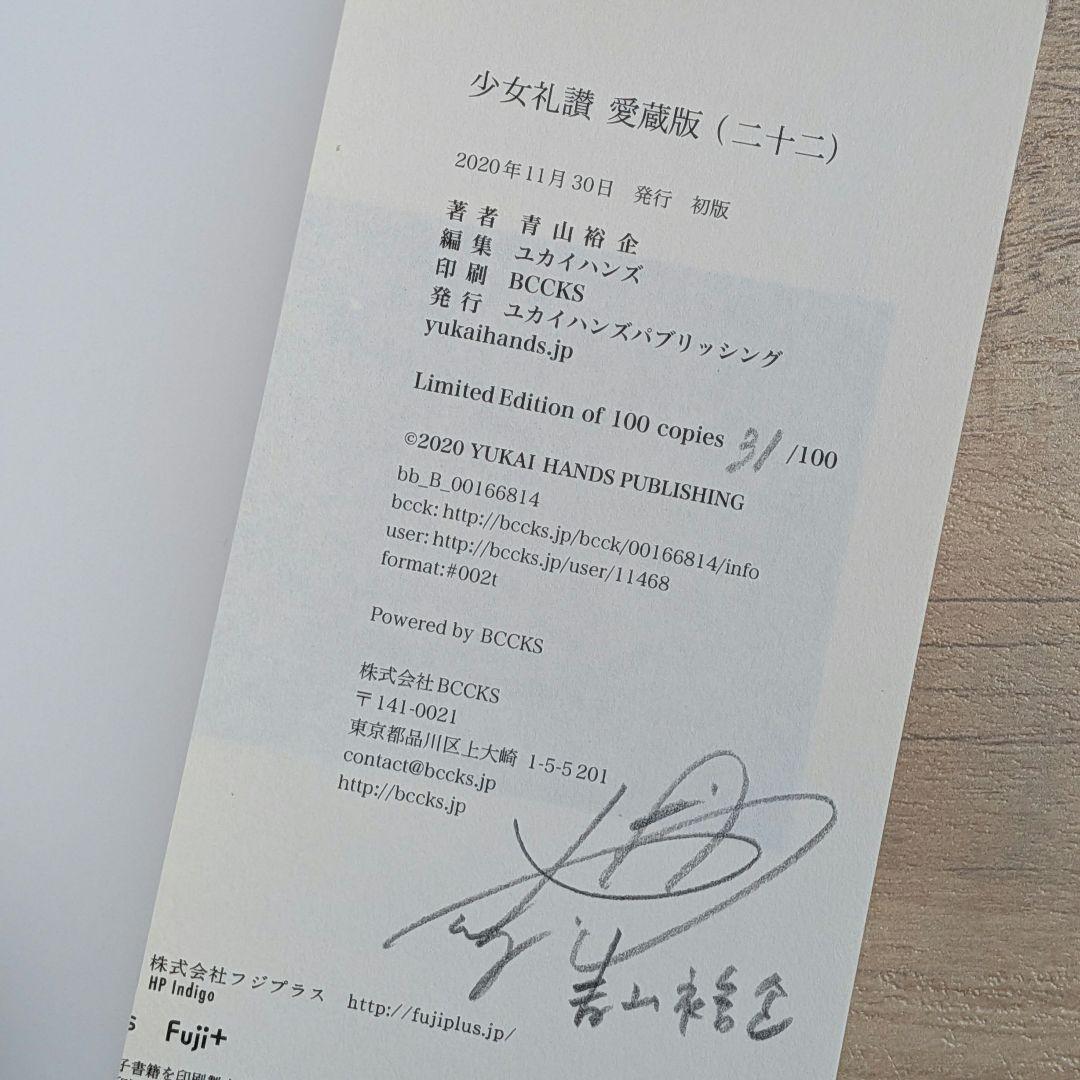 少女礼讃 愛蔵版（二十二）
2020年11月30日　発行　初版
著者　青山裕企
編集　ユカイハンズ
印刷　BCCKS
発行　ユカイハンズパブリッシング
yukaihands.jp
Limited Edition of 100 copies 31 /100
©2020 YUKAI HANDS PUBLISHING
bb_B_00166814
bcck: http://bccks.jp/bcck/00166814/info
user: http://bccks.jp/user/11468
format:#002t
Powered by BCCKS
株式会社BCCKS
〒141-0021
東京都品川区上大崎 1-5-5 201
contact@bccks.jp
http://bccks.jp
青山裕企
株式会社フジプラス　http://fujiplus.jp/
HP Indigo
Fuji+
子書籍を印刷製